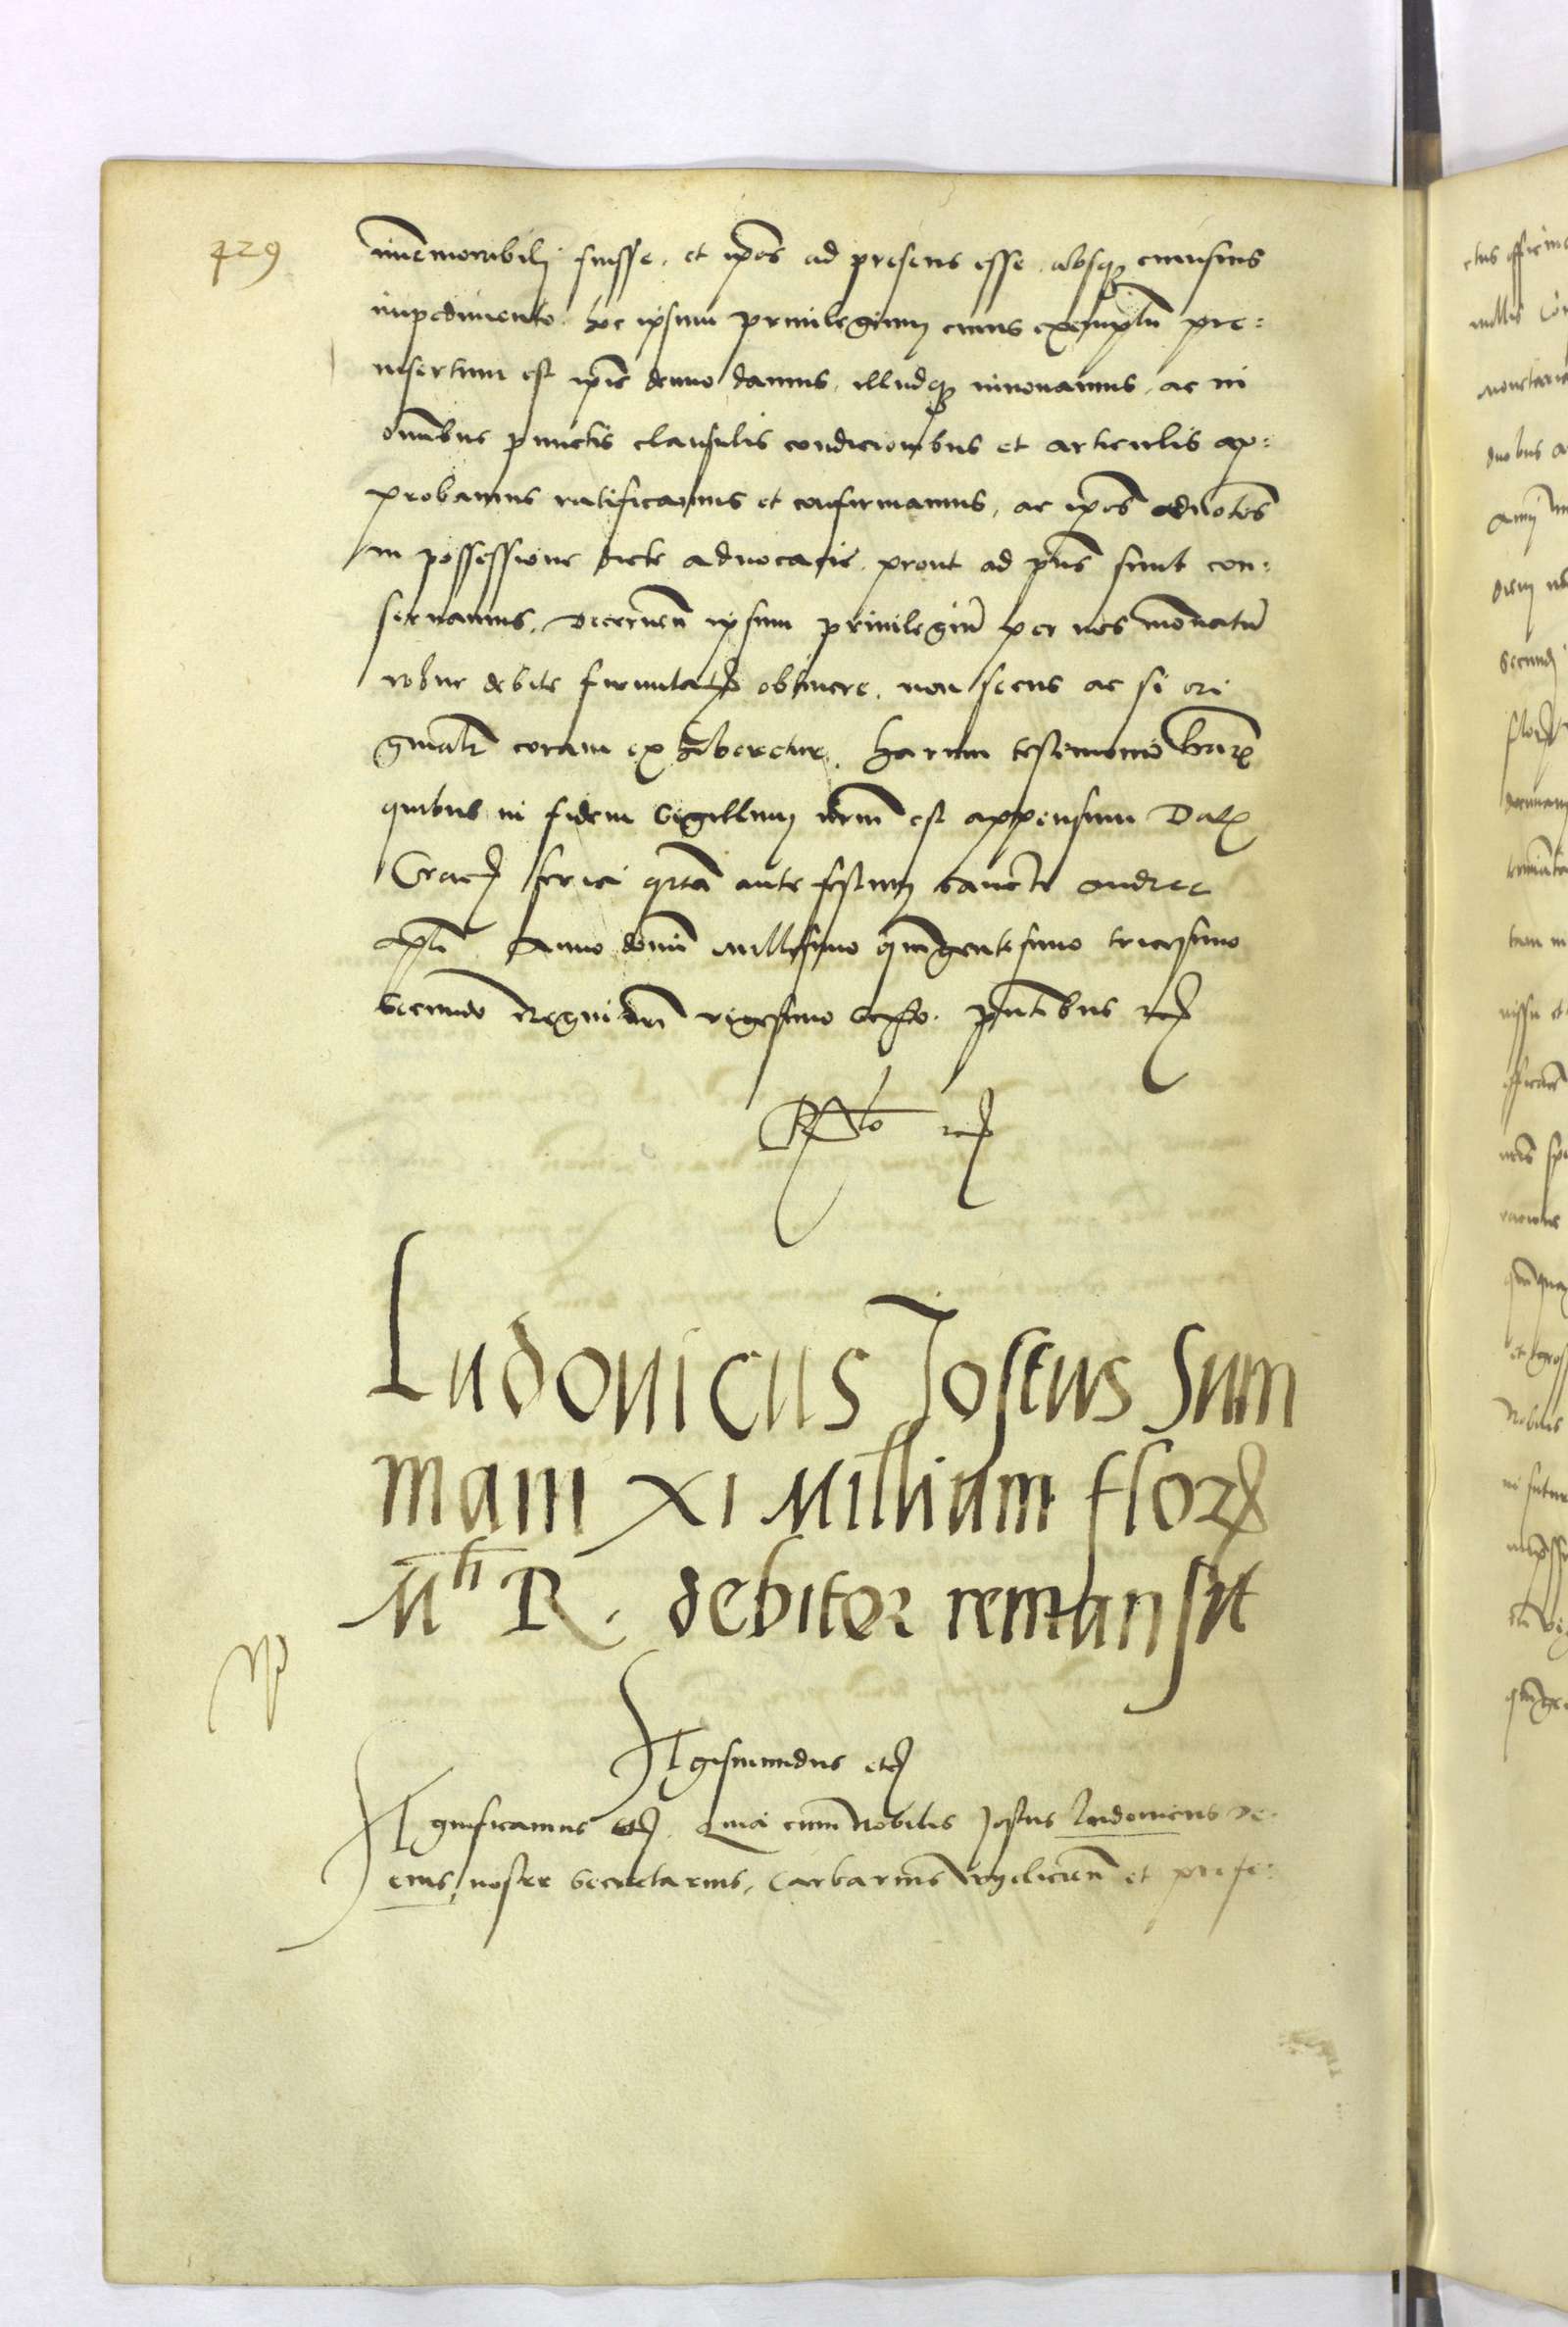 429
imemoribilj fuisse, et ipos ad presens esse absq cuiusuis
impedimento. hoc ipsum priuilegium cuius exemplu pre:
insertum est ipis denuo damus, illudq innouamus, ac in
omibus punctis clausulis condicionibus et articulis ap:
probamus ratificamus et confirmamus, ac ipos aduotos
in possessione dicte aduocacie, prout ad pns sunt con:
seruamus. Decernen ipsum priuilegiu per nos inouatu
robur debite firmitatis obtinere, non secus ac si ori
ginale coram exhiberetur. Harum testimonio lrarum
quibus in fidem sigillum nrum est appensum Dat
Crac feria qrta ante festum sancti Andree
apli Anno domi millesimo quingentesimo tricesimo
secundo Regni nri vigesimo sexto. pntibus etc
Rlo etc
Ludouicus Jostus Sum
mam XI Millium flor
Mti R. debitor remansit
Sigismundus etc
Significamus etc. Quia cum Nobilis Jostus Ludouicus De
cius, noster Secretarius, Carbarius Vyelicien et prefe: